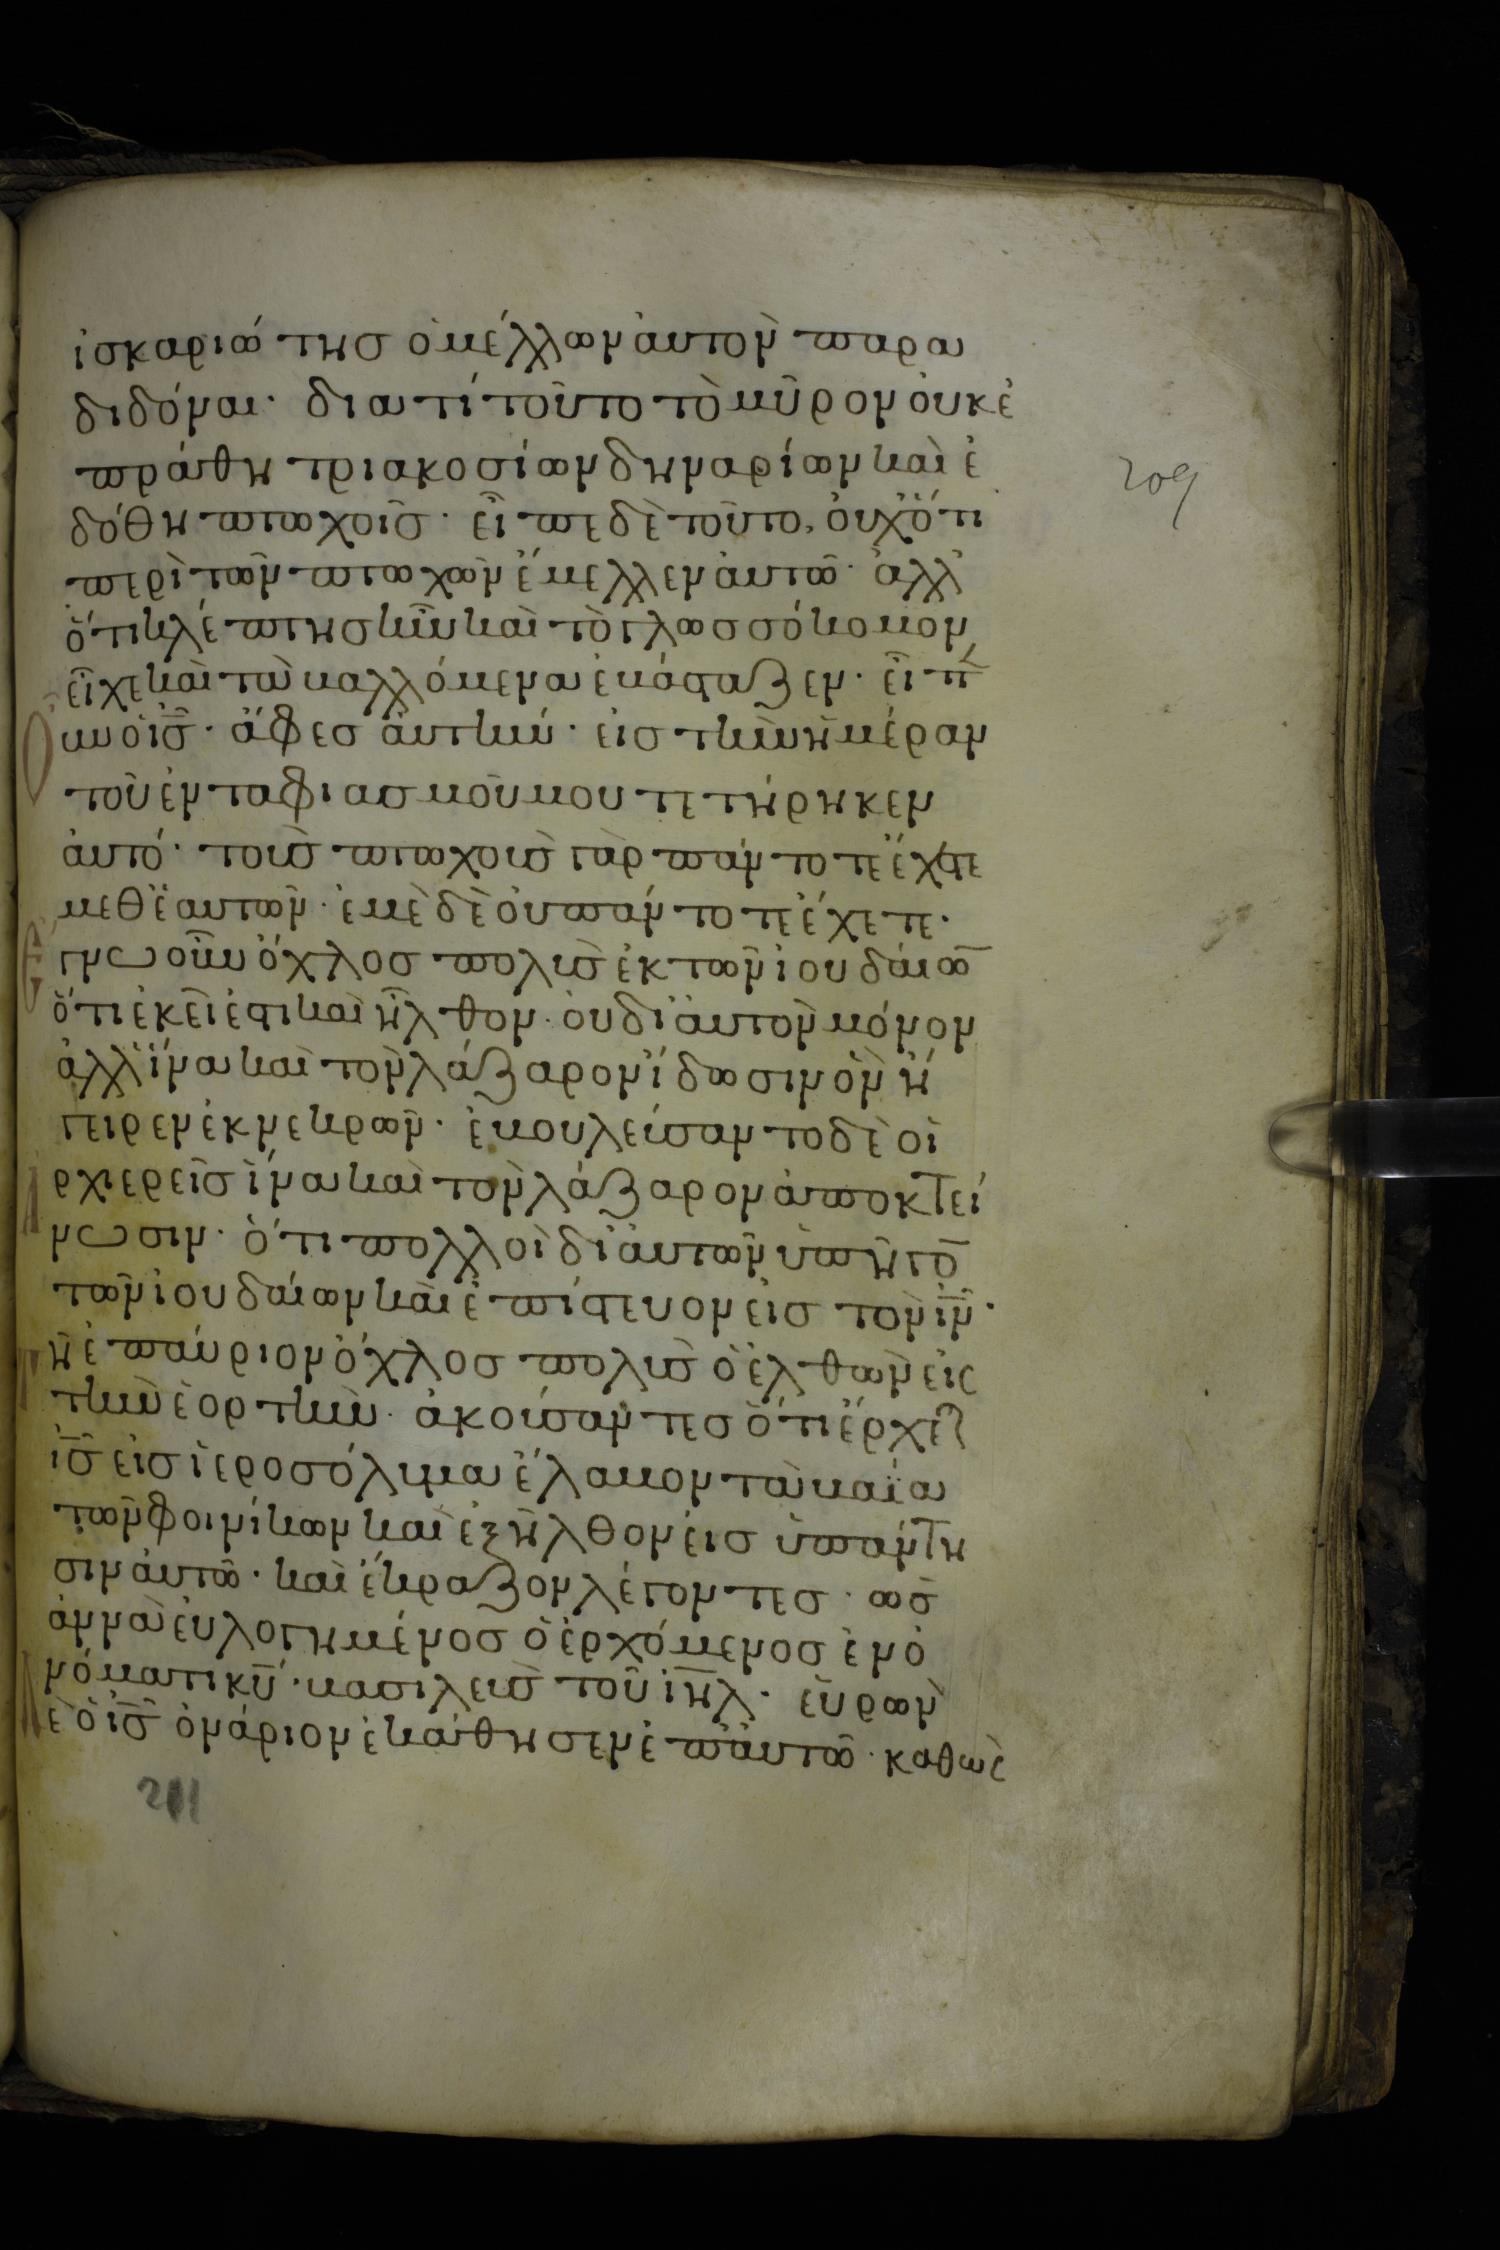 ἰσκαριώτης ὁ μέλλων ἀυτὸν παρα
διδόναι· διατί τοῦτο τὸ μῦρον ὀυκ ἐ
πράθη τριακοσίων δηναρίων καὶ ἐ
δόθη πτωχοῖς· εἶπε δὲ τοῦτο, ὀυχ ὅτι
περὶ τῶν πτωχῶν ἔμελλεν ἀυτῶ· ἀλλ'
ὅτι κλέπτης ἦν καὶ τὸ γλωσσόκομον
εἶχε καὶ τὰ βαλλόμενα ἐβάσταζεν· εἶπ
οὖν ὁ ις̅· ἄφες ἀυτήν· εἰς τὴν ἡμέραν
τοῦ ἐνταφιασμοῦ μου τετήρηκεν
ἀυτό· τοὺς πτωχοὺς γὰρ πάντοτε ἔχετε
μεθ' ἑαυτῶν· ἐμὲ δὲ ὀυ πάντοτε ἔχετε·
Ἔγνω οὖν ὄχλος πολὺς ἐκ τῶν ἰουδαίω̅
ὅτι ἐκεῖ ἐστι καὶ ἦλθον· ὀυ δι' ἀυτὸν μόνον
ἀλλ' ἵνα καὶ τὸν λάζαρον ἴδωσιν ὃν ἤ
γειρεν ἐκ νεκρῶν· ἐβουλεύσαντο δὲ οἱ
Ἀρχιερεῖς ἵνα καὶ τὸν λάζαρον ἀποκτεί
νωσιν· ὅτι πολλοὶ δι' ἀυτὸν ὑπῆγο̅
τῶν ἰουδαίων καὶ ἐπίστευον εἰς τὸν ιν̅·
Τῆ ἐπαύριον ὄχλος πολὺς ὁ ἐλθὼν εἰς
τὴν ἑορτὴν· ἀκούσαντες ὅτι ἔρχεται
ις̅ εἰς ἱεροσόλυμα ἔλαβον τὰ βαΐα
τῶν φοινίκων καὶ ἐξῆλθον εἰς ὑπάντη
σιν ἀυτῶ· καὶ ἔκραζον λέγοντες· ὡσ
άννα ἐυλογημένος ὁ ἐρχόμενος ἐν ὀ
νόματι κυ̅· βασιλεὺς τοῦ ιηλ̅· εὑρὼν
Δὲ ὁ ις̅ ὀνάριον ἐκάθησεν ἐπ' ἀυτῶ· καθὼς
209
211